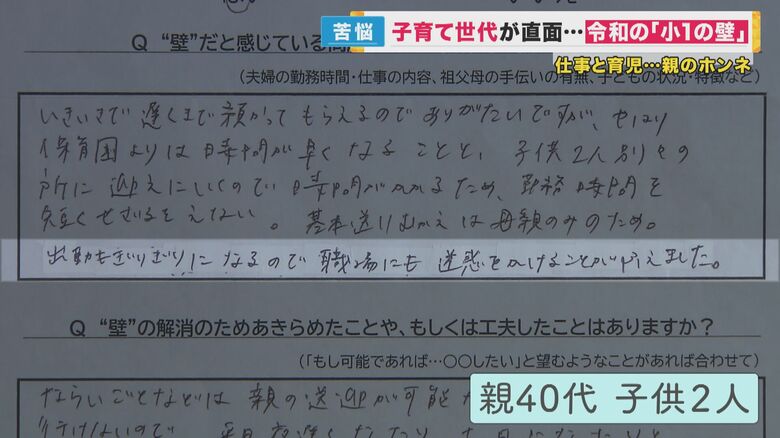 苦悩 子育て世代が直面…令和の「小1の壁」
仕事と育児…親のホンネ
Q “壁”だと感じている
(夫婦の勤務時間・仕事の内容、祖父母の手伝いの有無、子どもの状況・特徴など)
いきいきで遅くまで預かってもらえるのでありがたいですが、やはり
保育園よりは時間が早くなることと、子供2人別々の
所に迎えにいくので時間がかかるため、勤務時間を
短くせざるをえない。基本送りむかえは母親のみのため。
出勤もぎりぎりになるので職場にも迷惑をかけることが増えました。
Q “壁”の解消のためあきらめたことや、もしくは工夫したことはありますか？
(「もし可能であれば…〇〇したい」と望むようなことがあれば合わせて)
ならいごとなどは親の送迎が可能
親40代 子供2人